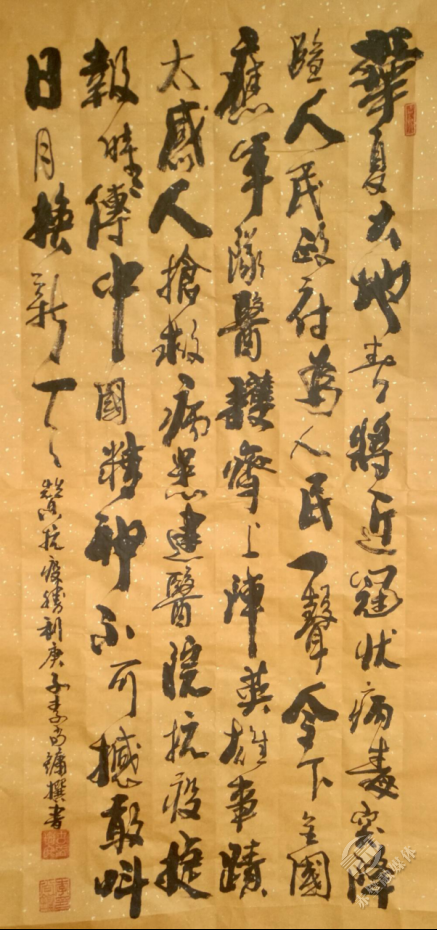 華夏大地春將近冠狀病毒突降
臨人民政府為人民一聲令下全國
應軍隊醫護齊上陣英雄事蹟
太感人搶救病患建醫院抗疫捷
報時時傳中國精神不可撼敢叫
日月換新
贊抗疫勝利庚子李 撰書